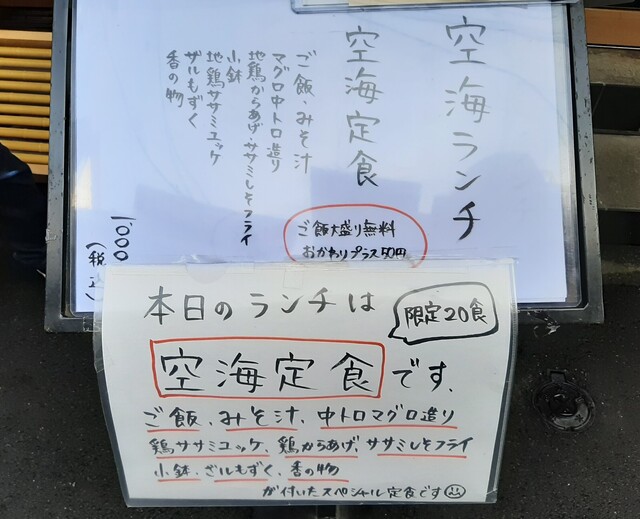 空海ランチ
空海定食
ご飯・みそ汁
マグロ中トロ造り
地鶏からあげ・ササミしそフライ
小鉢
地鶏ササミユッケ
ザルもずく
香の物
ご飯大盛り無料
おかわりプラス50円
1,000
(税込)
本日のランチは
限定20食
空海定食です、
ご飯、みそ汁、中トロマグロ造り
鶏ササミユッケ、鶏からあげ、ササミしそフライ
小鉢、ざルもずく、香の物
が付いたスペシャル定食です